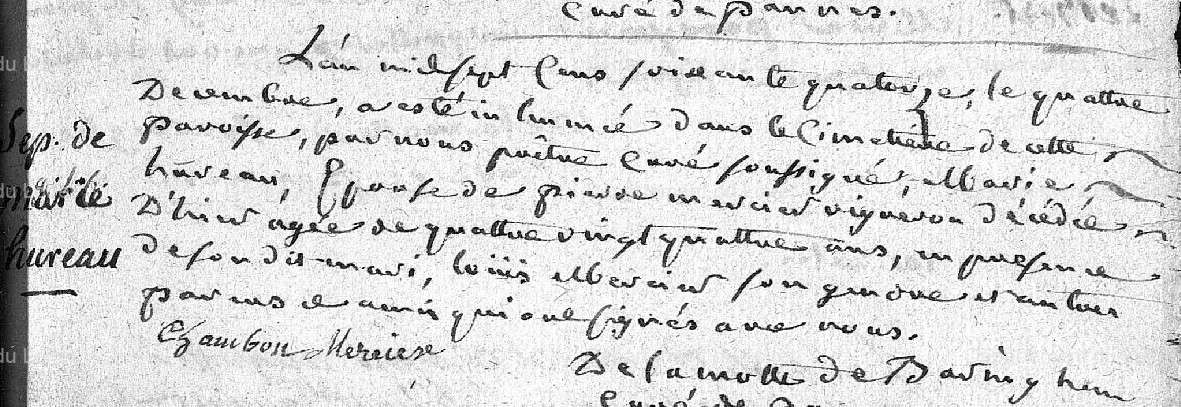 Curé de Pannes.
L'an mil sept cens soixante quatorze, le quattre
Sep. de
marie
hureau
Decembre, a esté inhumée dans le Cimetière de cette
paroisse, par nous prêtre Curé soussigné, Marie
hureau, Epouse de pierre mercier vigneron décédée
D'hier âgée de quattre vingt quattre ans, en presence
de son dit mari, loüis Mercier son gendre et autres
parens et amis qui ont signés avec nous.
Chambon Mercier
De lamotte de
Curé de